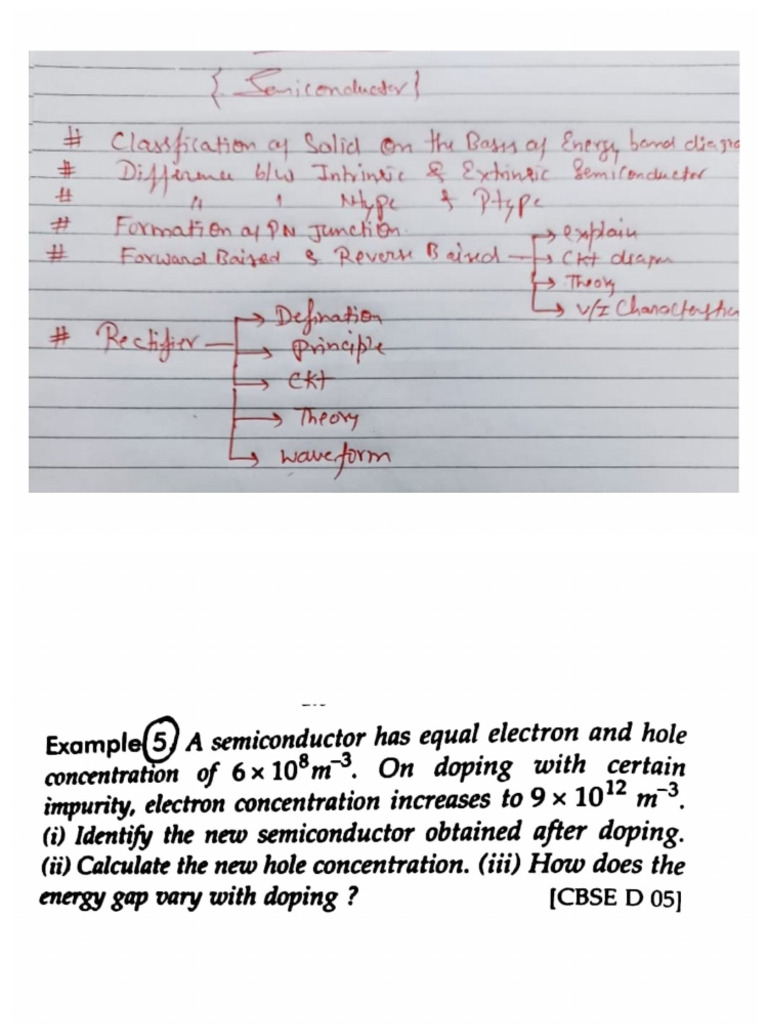 { Semiconductor }
# Classfication of Solid on the Basis of Energy band diagra
# Difference b/w Intrinsic & Extrinsic Semiconductor
# " " N-type & P-type
# Formation of PN Junction
# Forward Baised & Reverse Baised → explain
→ Ckt diagram
→ Theory
→ V/I Characteristics
# Rectifier → Defination
→ principle
→ Ckt
→ Theory
→ waveform
Example 5. A semiconductor has equal electron and hole
concentration of 6 × 10⁸ m⁻³. On doping with certain
impurity, electron concentration increases to 9 × 10¹² m⁻³.
(i) Identify the new semiconductor obtained after doping.
(ii) Calculate the new hole concentration. (iii) How does the
energy gap vary with doping ? [CBSE D 05]